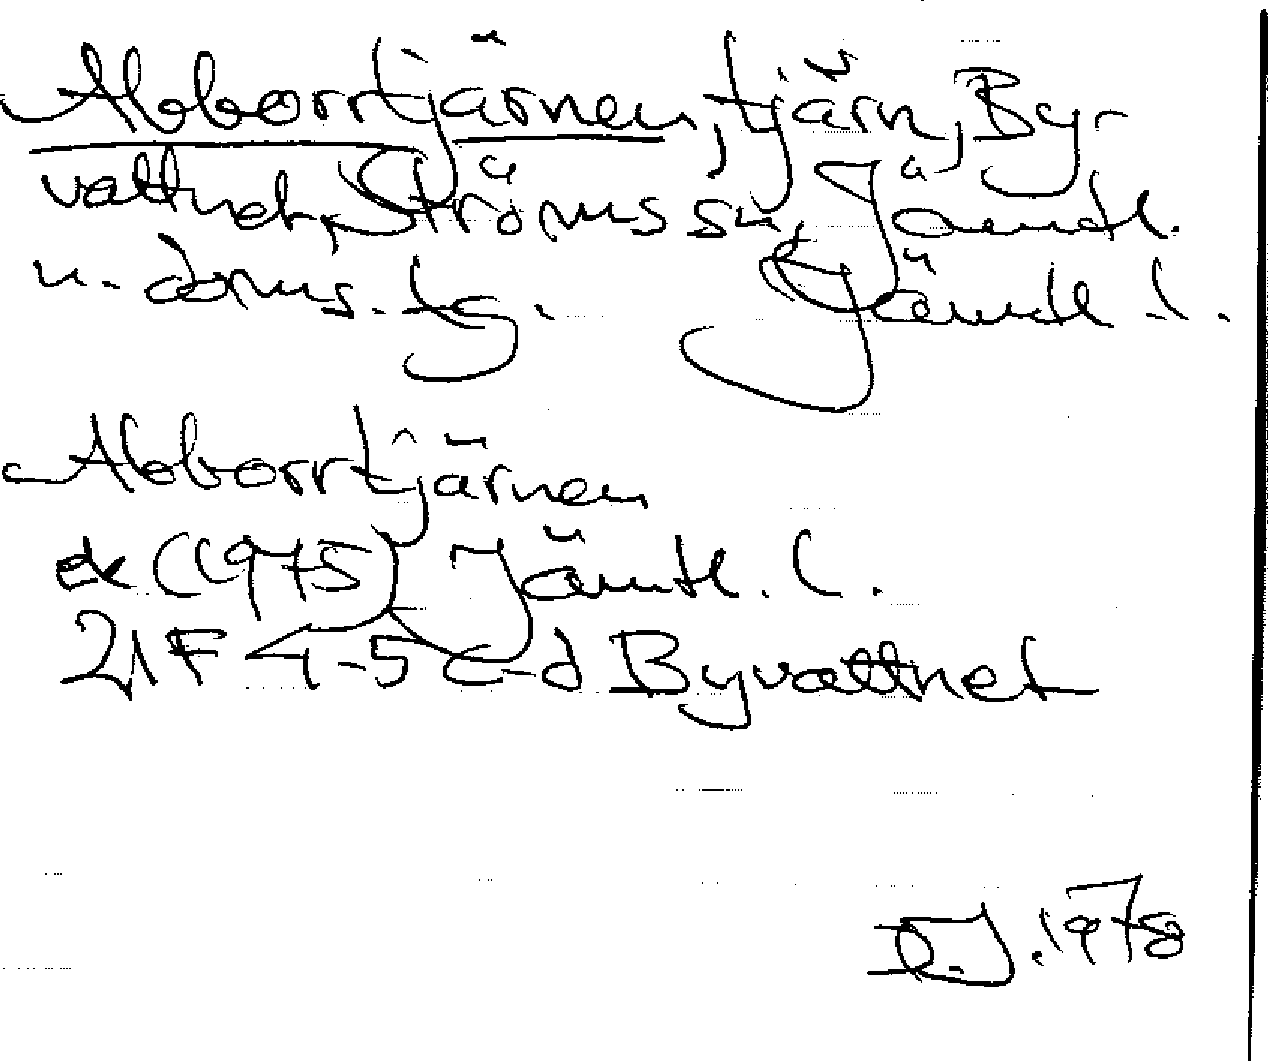 Abborrtjärnen, tjärn, By-
vattnet, Ströms sn, Jämtl.
n. doms. tg. Jämtl. l.
Abborrtjärnen
ek (1975) Jämtl. l.
21F 4-5 c-d Byvattnet
D.J. 1978